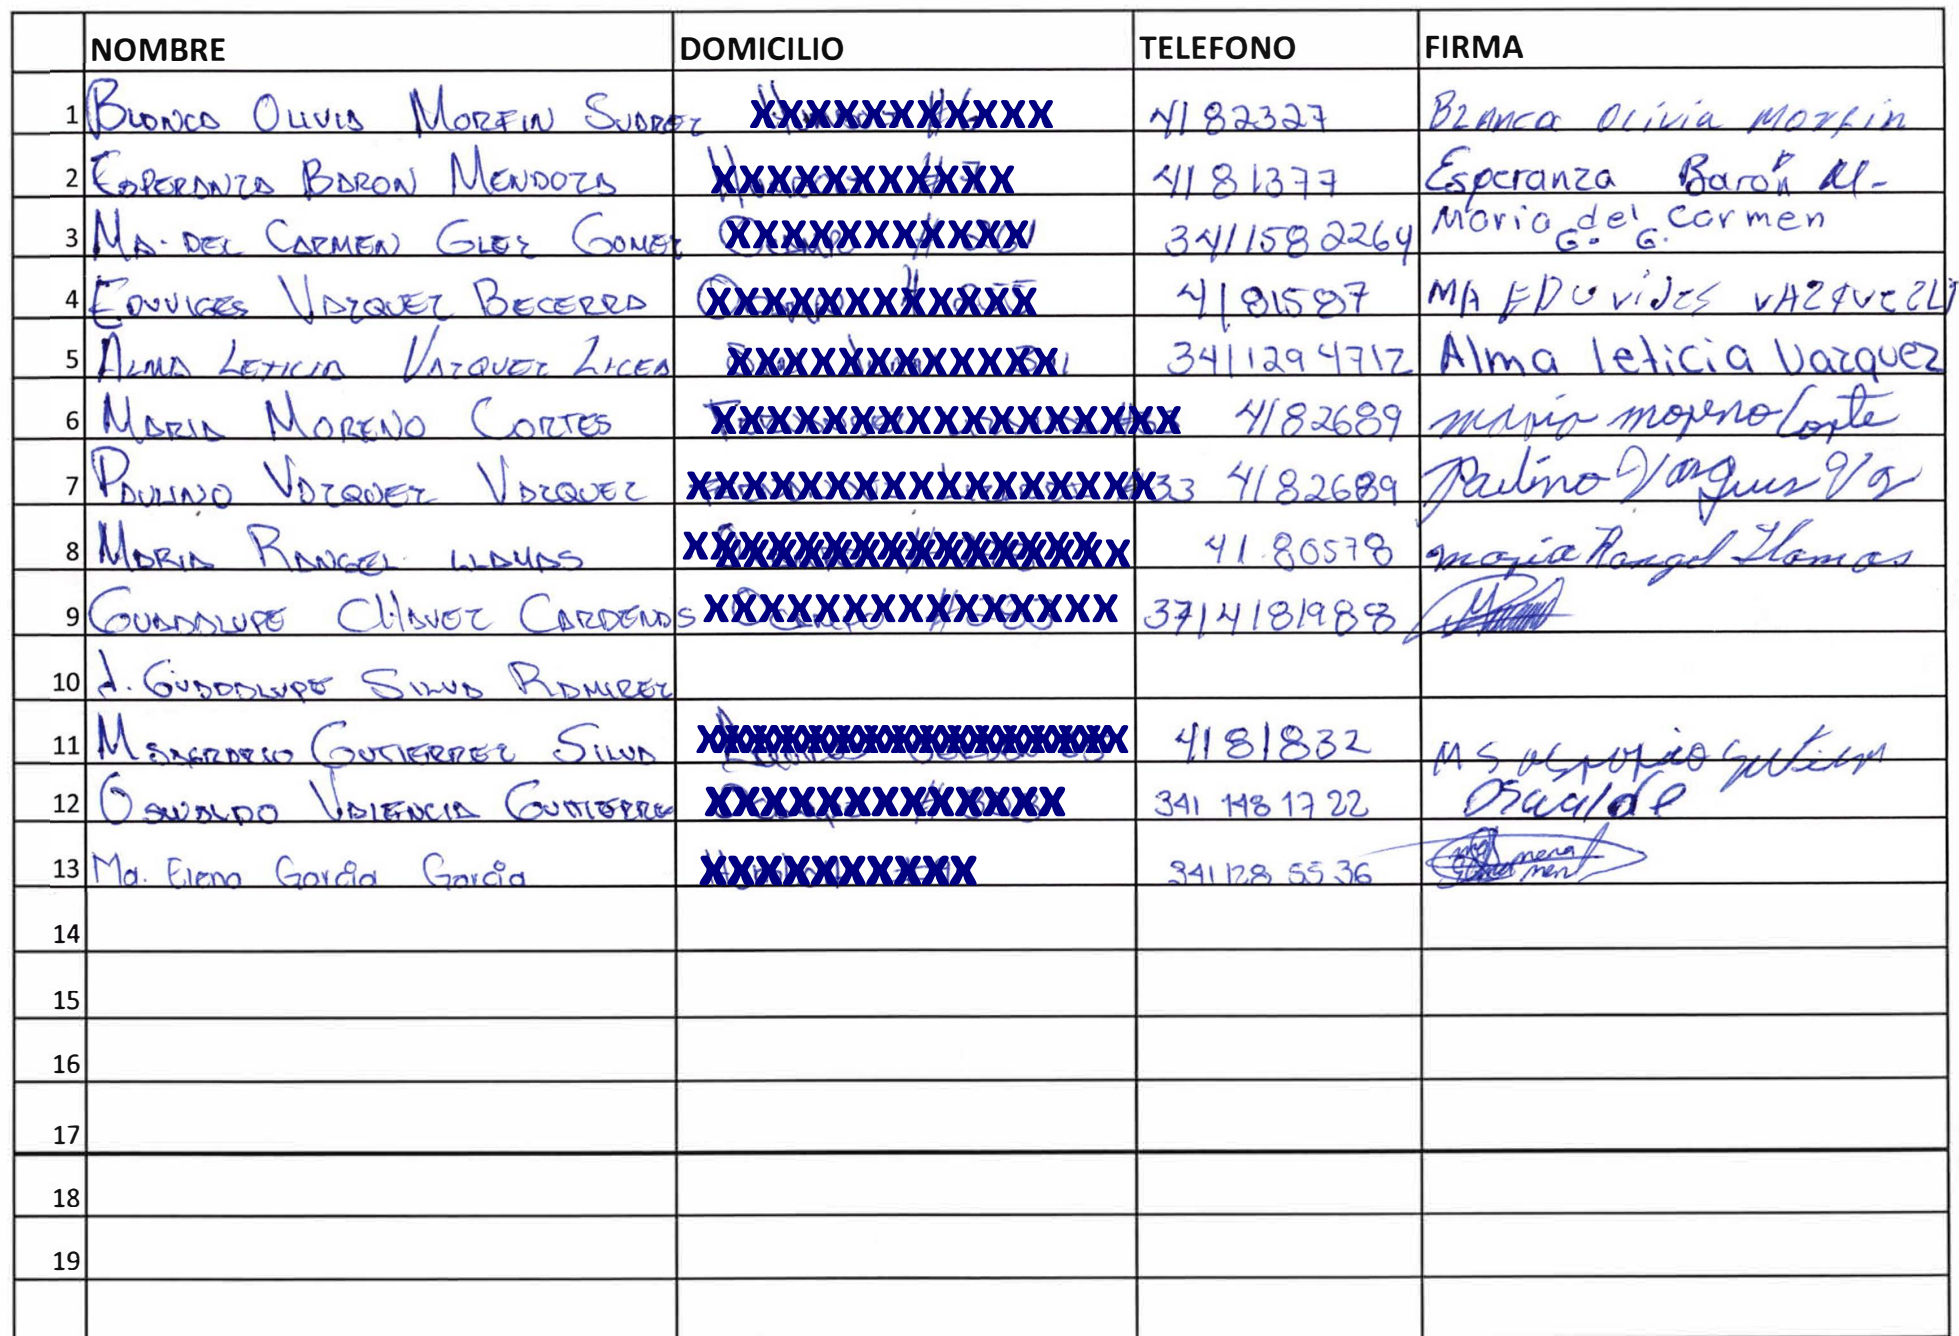 NOMBRE DOMICILIO TELEFONO FIRMA
1 BLANCA OLIVIA MORFIN SUAREZ XXXXXXXXXXX 4182327 Blanca Olivia Morfin
2 ESPERANZA BARON MENDOZA XXXXXXXXXXX 4181377 Esperanza Barón M.
3 MA. DEL CARMEN GLEZ GOMEZ XXXXXXXXXXX 3411582264 Maria del Carmen G. G.
4 EDUVIGES VAZQUEZ BECERRA XXXXXXXXXXXX 4181587 MA EDUviJES VAZQUEZ
5 ALMA LETICIA VAZQUEZ LICEA XXXXXXXXXXXX 3411294712 Alma leticia Vazquez
6 MARIA MORENO CORTES XXXXXXXXXXXXXXXXX 4182689 maria moreno Corte
7 PAULINO VAZQUEZ VAZQUEZ XXXXXXXXXXXXXXXXX 33 4182689 Paulino
8 MARIA RANGEL LLAMAS XXXXXXXXXXXXXXXX 41.80578 maria Rangel Llamas
9 GUADALUPE CHAVEZ CARDENAS XXXXXXXXXXXXXXX 3714181988
10 J. GUADALUPE SILVA RAMIREZ
11 M SAGRARIO GUTIERREZ SILVA 4181832
12 OSWALDO VALENCIA GUTIERRE XXXXXXXXXXXXX 341 148 17 22 Oswaldo
13 Ma. Elena García García XXXXXXXXXX 341 128 55 36
14
15
16
17
18
19